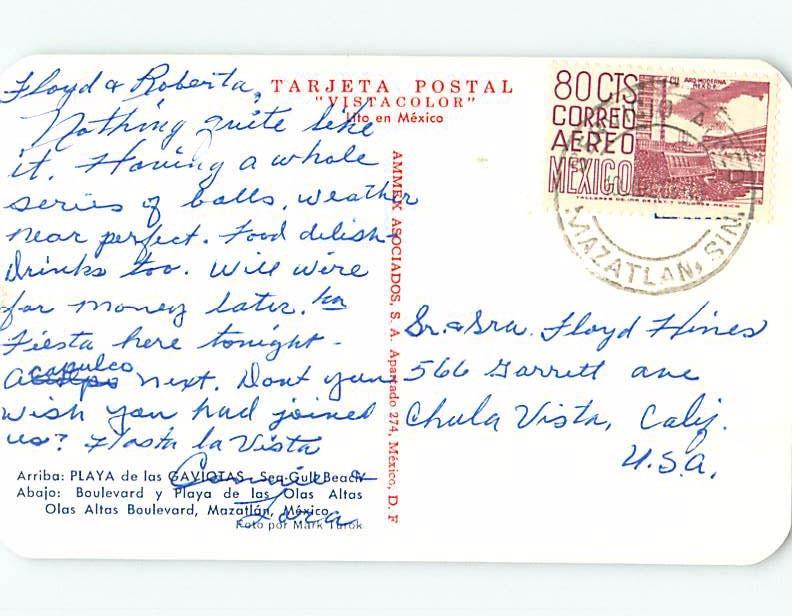 Floyd & Roberta,
Nothing quite like
it. Having a whole
series of balls, weather
near perfect. Food delish-
Drinks too. Will wire
for money later.
Fiesta here tonight -
Acapulco next. Dont you
wish you had joined
us? Hasta la Vista
Connie &
TARJETA POSTAL
"VISTACOLOR"
Lito en México
AMMEX ASOCIADOS, S. A. Apartado 274, México, D. F
80 CTS
CORREO
AEREO
MEXICO
ARQ MODERNA
MEXICO
MAZATLAN, SIN.
Sr. & Sra. Floyd Hines
566 Garrett ave
Chula Vista, Calif.
U.S.A.
Arriba: PLAYA de las GAVIOTAS - Sea-Gull Beach
Abajo: Boulevard y Playa de las Olas Altas
Olas Altas Boulevard, Mazatlán, México.
Foto por Mark Turok